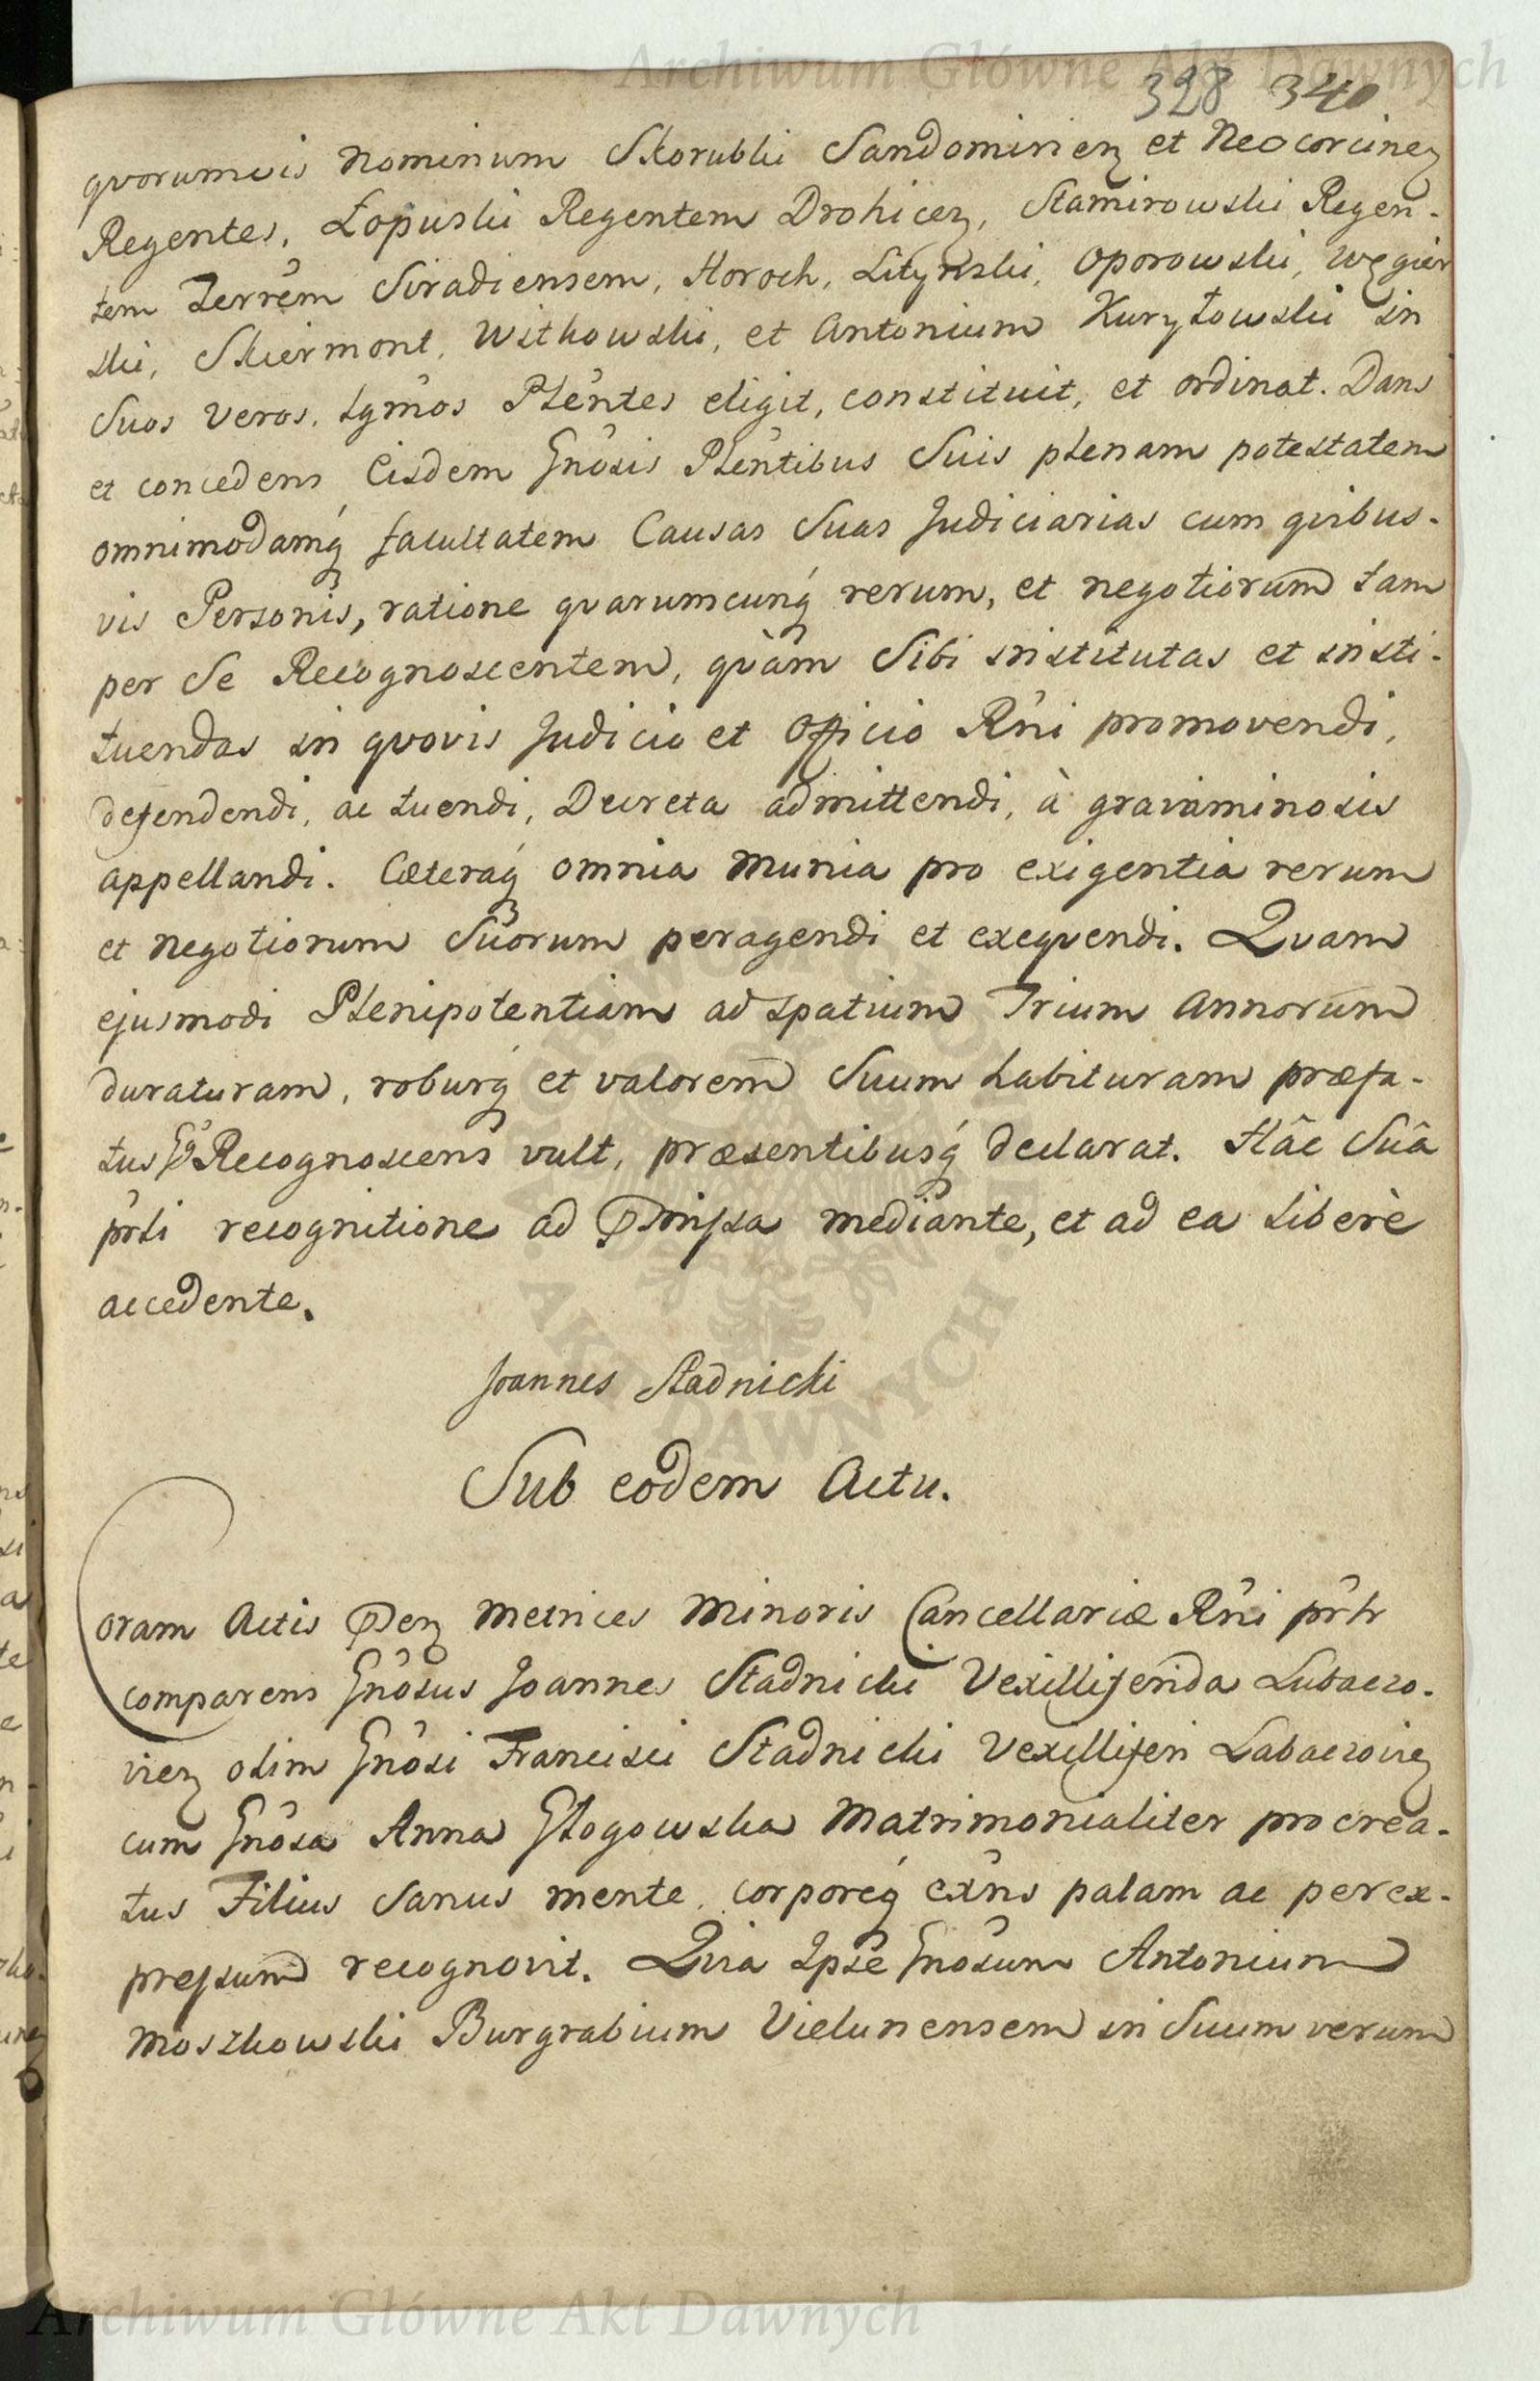 328 340
qvorumvis Nominum Skorubki Sandomirien et Neocorcinen
Regentes, Łopuski Regentem Drohicen, Stamirowski Regen-
tem Terrem Siradiensem, Horoch, Lityński, Oporowski, Węgier
ski, Skiermont, Witkowski, et Antonium Kuryłowski in
Suos veros, lgmos Plentes eligit, constituit, et ordinat. Dans
et concedens Eisdem Gnosis Plentibus Suis plenam potestatem
omnimodamq facultatem Causas Suas Judiciarias cum qvibus-
vis Personis, ratione qvarumcunq rerum, et negotiorum tam
per Se Recognoscentem, qvàm Sibi institutas et insti-
tuendas in qvovis Judicio et Officio Rni promovendi,
defendendi, ac tuendi, Decreta admittendi, à gravaminosis
appellandi. Cæteraq omnia Munia pro exigentia rerum
et negotiorum Suorum peragendi et exeqvendi. Qvam
ejusmodi Plenipotentiam ad spatium Trium Annorum
duraturam, roburq et valorem Suum habituram præfa-
tus Recognoscens vult, præsentibusq declarat. Hâc Suâ
prti recognitione ad Pmissa mediante, et ad ea liberè
accedente.
Joannes Stadnicki
Sub eodem Actu.
Coram Actis Pen Metrices Minoris Cancellariæ Rni prtr
comparens Gnosus Joannes Stadnicki Vexilliferida Lubaczo-
vien olim Gnosi Francisci Stadnicki Vexilliferi Lubaczovien
cum Gnosa Anna Głogowska Matrimonialiter procrea-
tus Filius Sanus mente, corporeq exns palam ac perex-
pressum recognovit. Qvia Ipse Gnosum Antonium
Moszkowski Burgrabium Vielunensem in Suum verum
Archiwum Główne Akt Dawnych